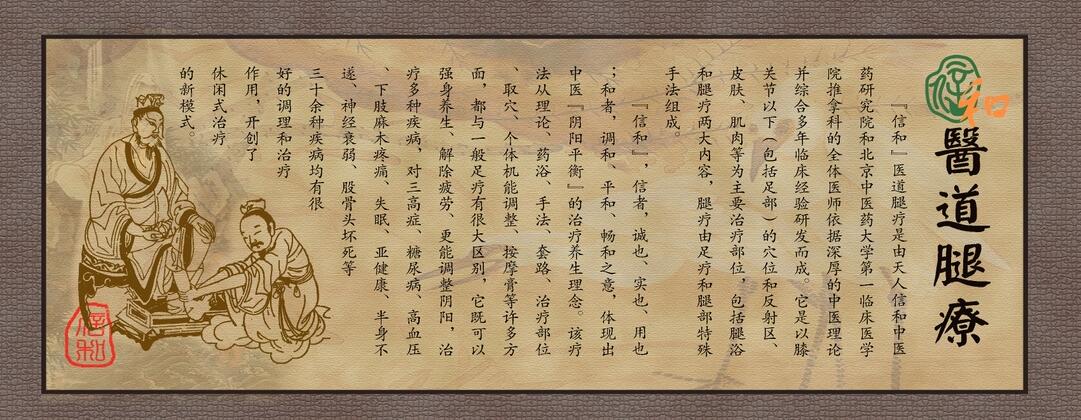 信和
醫道腿療
『信和』医道腿疗是由天人信和中医
药研究院和北京中医药大学第一临床医学
院推拿科的全体医师依据深厚的中医理论
并综合多年临床经验研发而成。它是以膝
关节以下（包括足部）的穴位和反射区、
皮肤、肌肉等为主要治疗部位，包括腿浴
和腿疗两大内容，腿疗由足疗和腿部特殊
手法组成。
『信和』，信者，诚也、实也、用也
；和者，调和、平和、畅和之意，体现出
中医『阴阳平衡』的治疗养生理念。该疗
法从理论、药浴、手法、套路、治疗部位
、取穴、个体机能调整、按摩膏等许多方
面，都与一般足疗有很大区别，它既可以
强身养生、解除疲劳、更能调整阴阳，治
疗多种疾病，对三高症、糖尿病、高血压
、下肢麻木疼痛、失眠、亚健康、半身不
遂、神经衰弱、股骨头坏死等
三十余种疾病均有很
好的调理和治疗
作用，开创了
休闲式治疗
的新模式。
信和